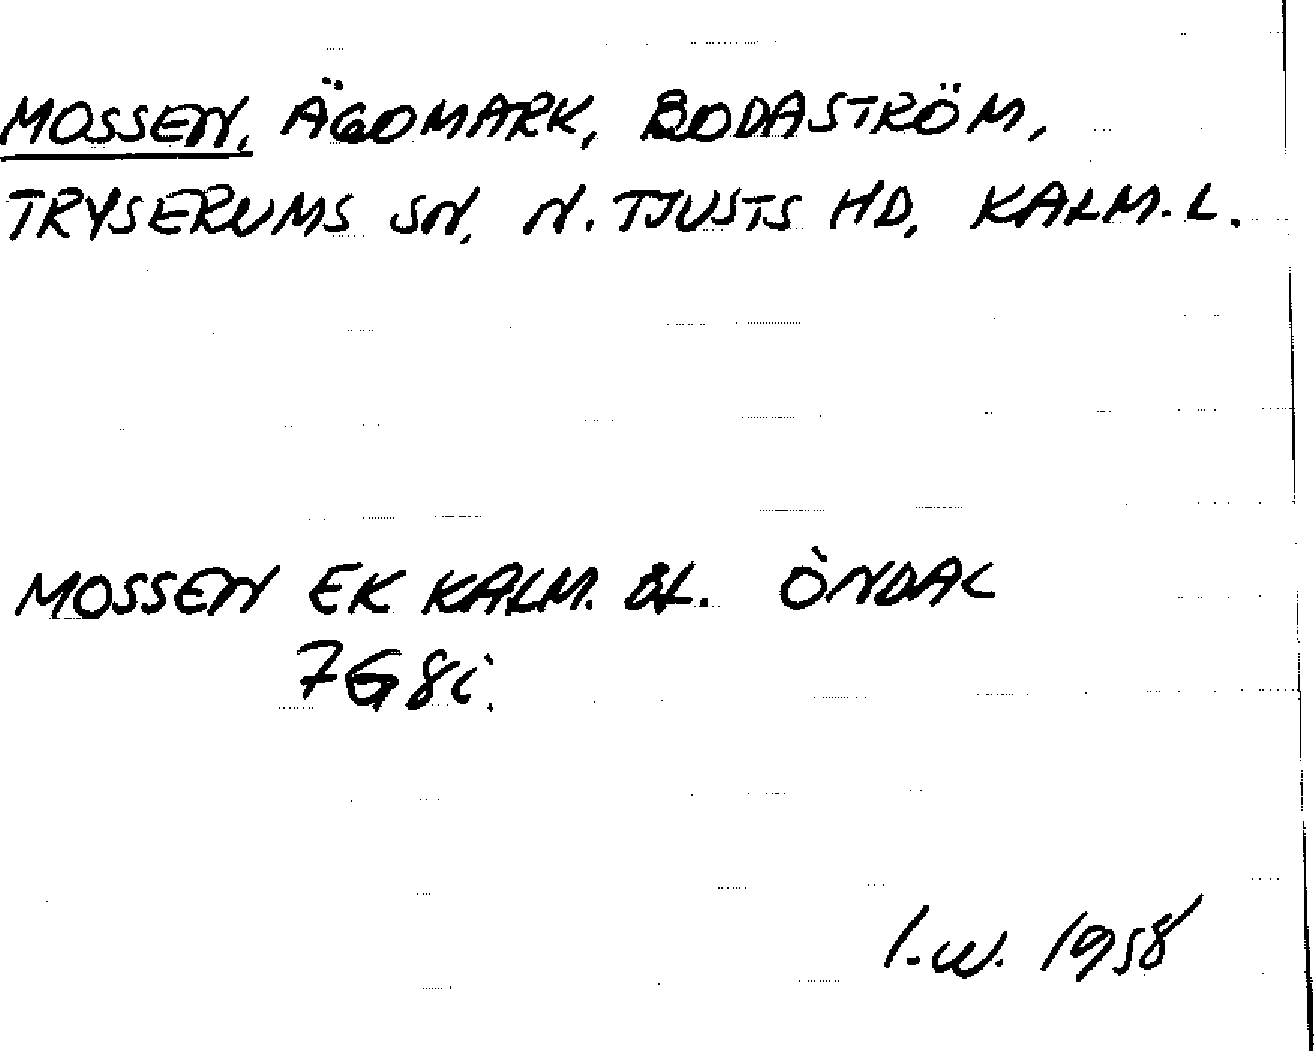 MOSSEN, ÄGOMARK, BODASTRÖM,
TRYSERUMS SN, N. TJUSTS HD, KALM. L.
MOSSEN EK KALM. BL. ÖNDAL
7G8i.
I.W. 1958